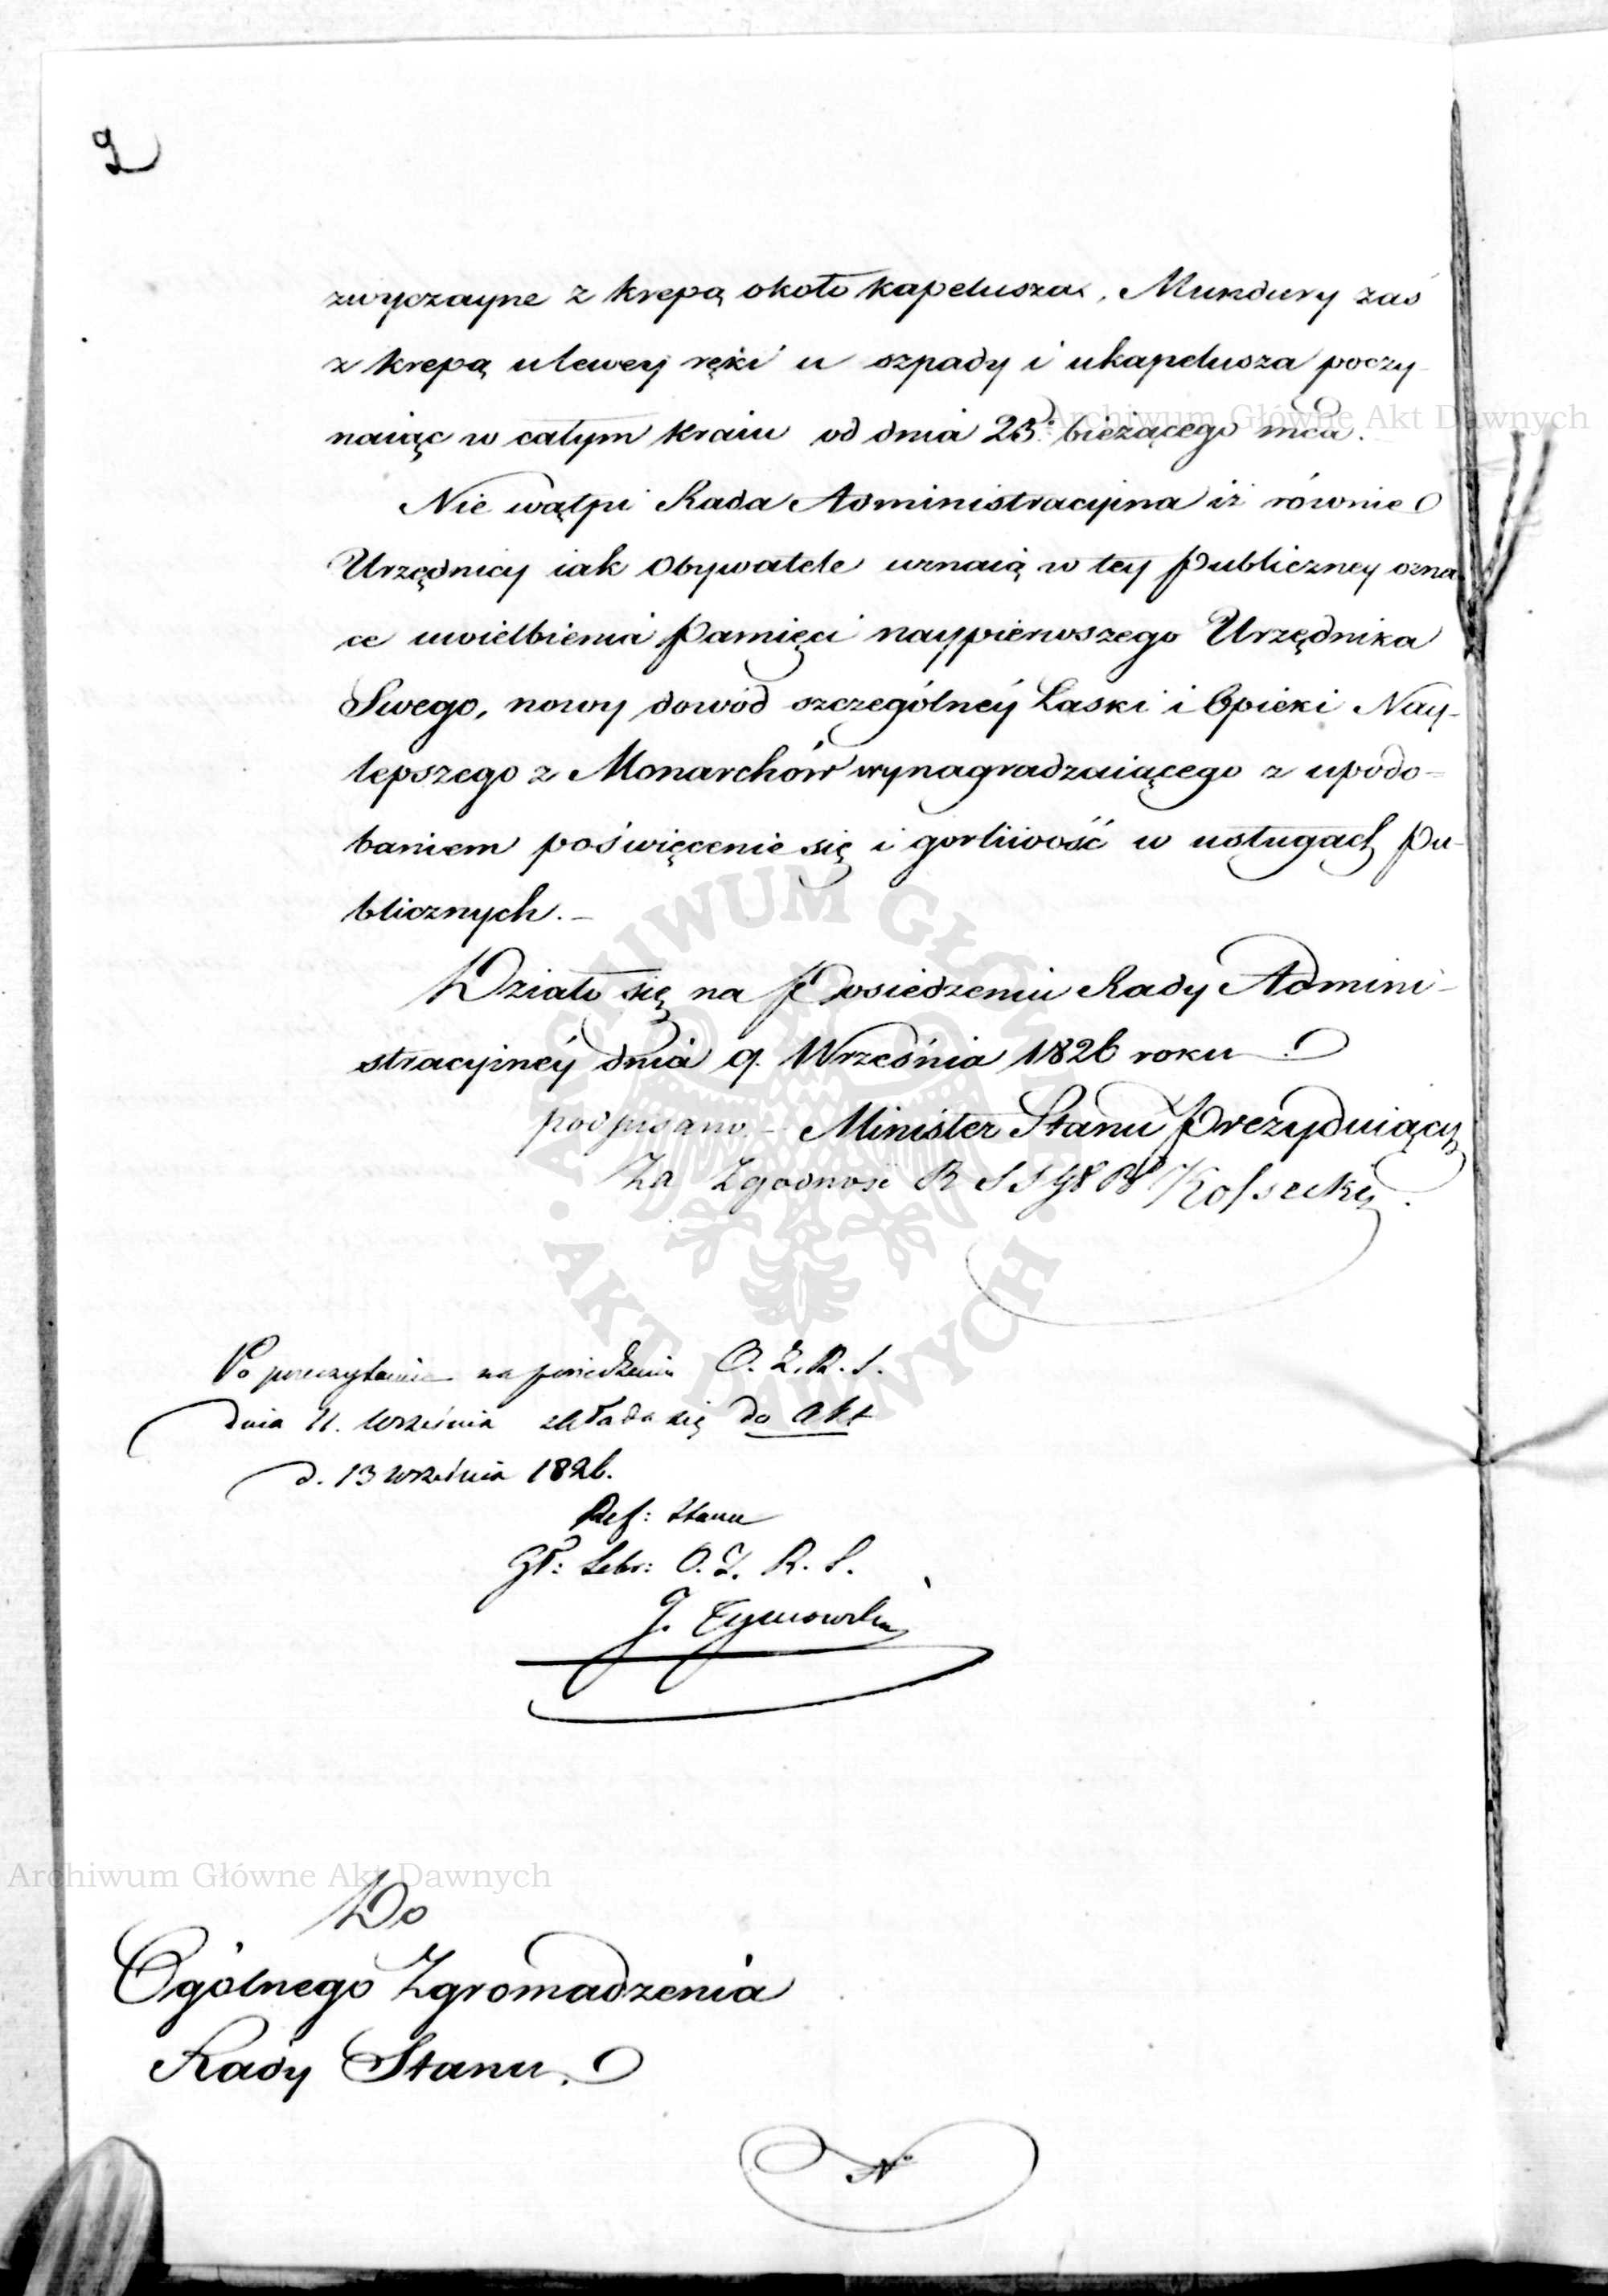 2
zwyczayne z krepą około kapelusza, Mundury zaś
z krepą u lewey ręki u szpady i u kapelusza poczy-
naiąc w całym kraiu od dnia 23º bieżącego mca.
Nie wątpi Rada Administracyina iż równie
Urzędnicy iak Obywatele uznaią w tey Publiczney ozna
ce uwielbienia Pamięci naypierwszego Urzędnika
Swego, nowy dowód szczególnéy Łaski i Opieki Nay-
lepszego z Monarchów wynagradzaiącego z upodo-
baniem poświęcenie się i gorliwość w usługach Pu-
blicznych.-
Działo się na Posiedzeniu Rady Admini-
stracyinéy dnia 9. Września 1826 roku
podpisano - Minister Stanu Prezyduiący
Za Zgodność R S S Kossecki
Po przeczytaniu na posiedzeniu O. Z. R. S.
dnia 11. Września składa się do Akt
d. 13 Września 1826.
Ref: Stanu
Gł: Sekr: O. Z. R. S.
J. Tymowski
Archiwum Główne Akt Dawnych
Do
Ogólnego Zgromadzenia
Rady Stanu.
N
Archiwum Główne Akt Dawnych
ARCHIWUM GŁÓWNE · AKT DAWNYCH ·